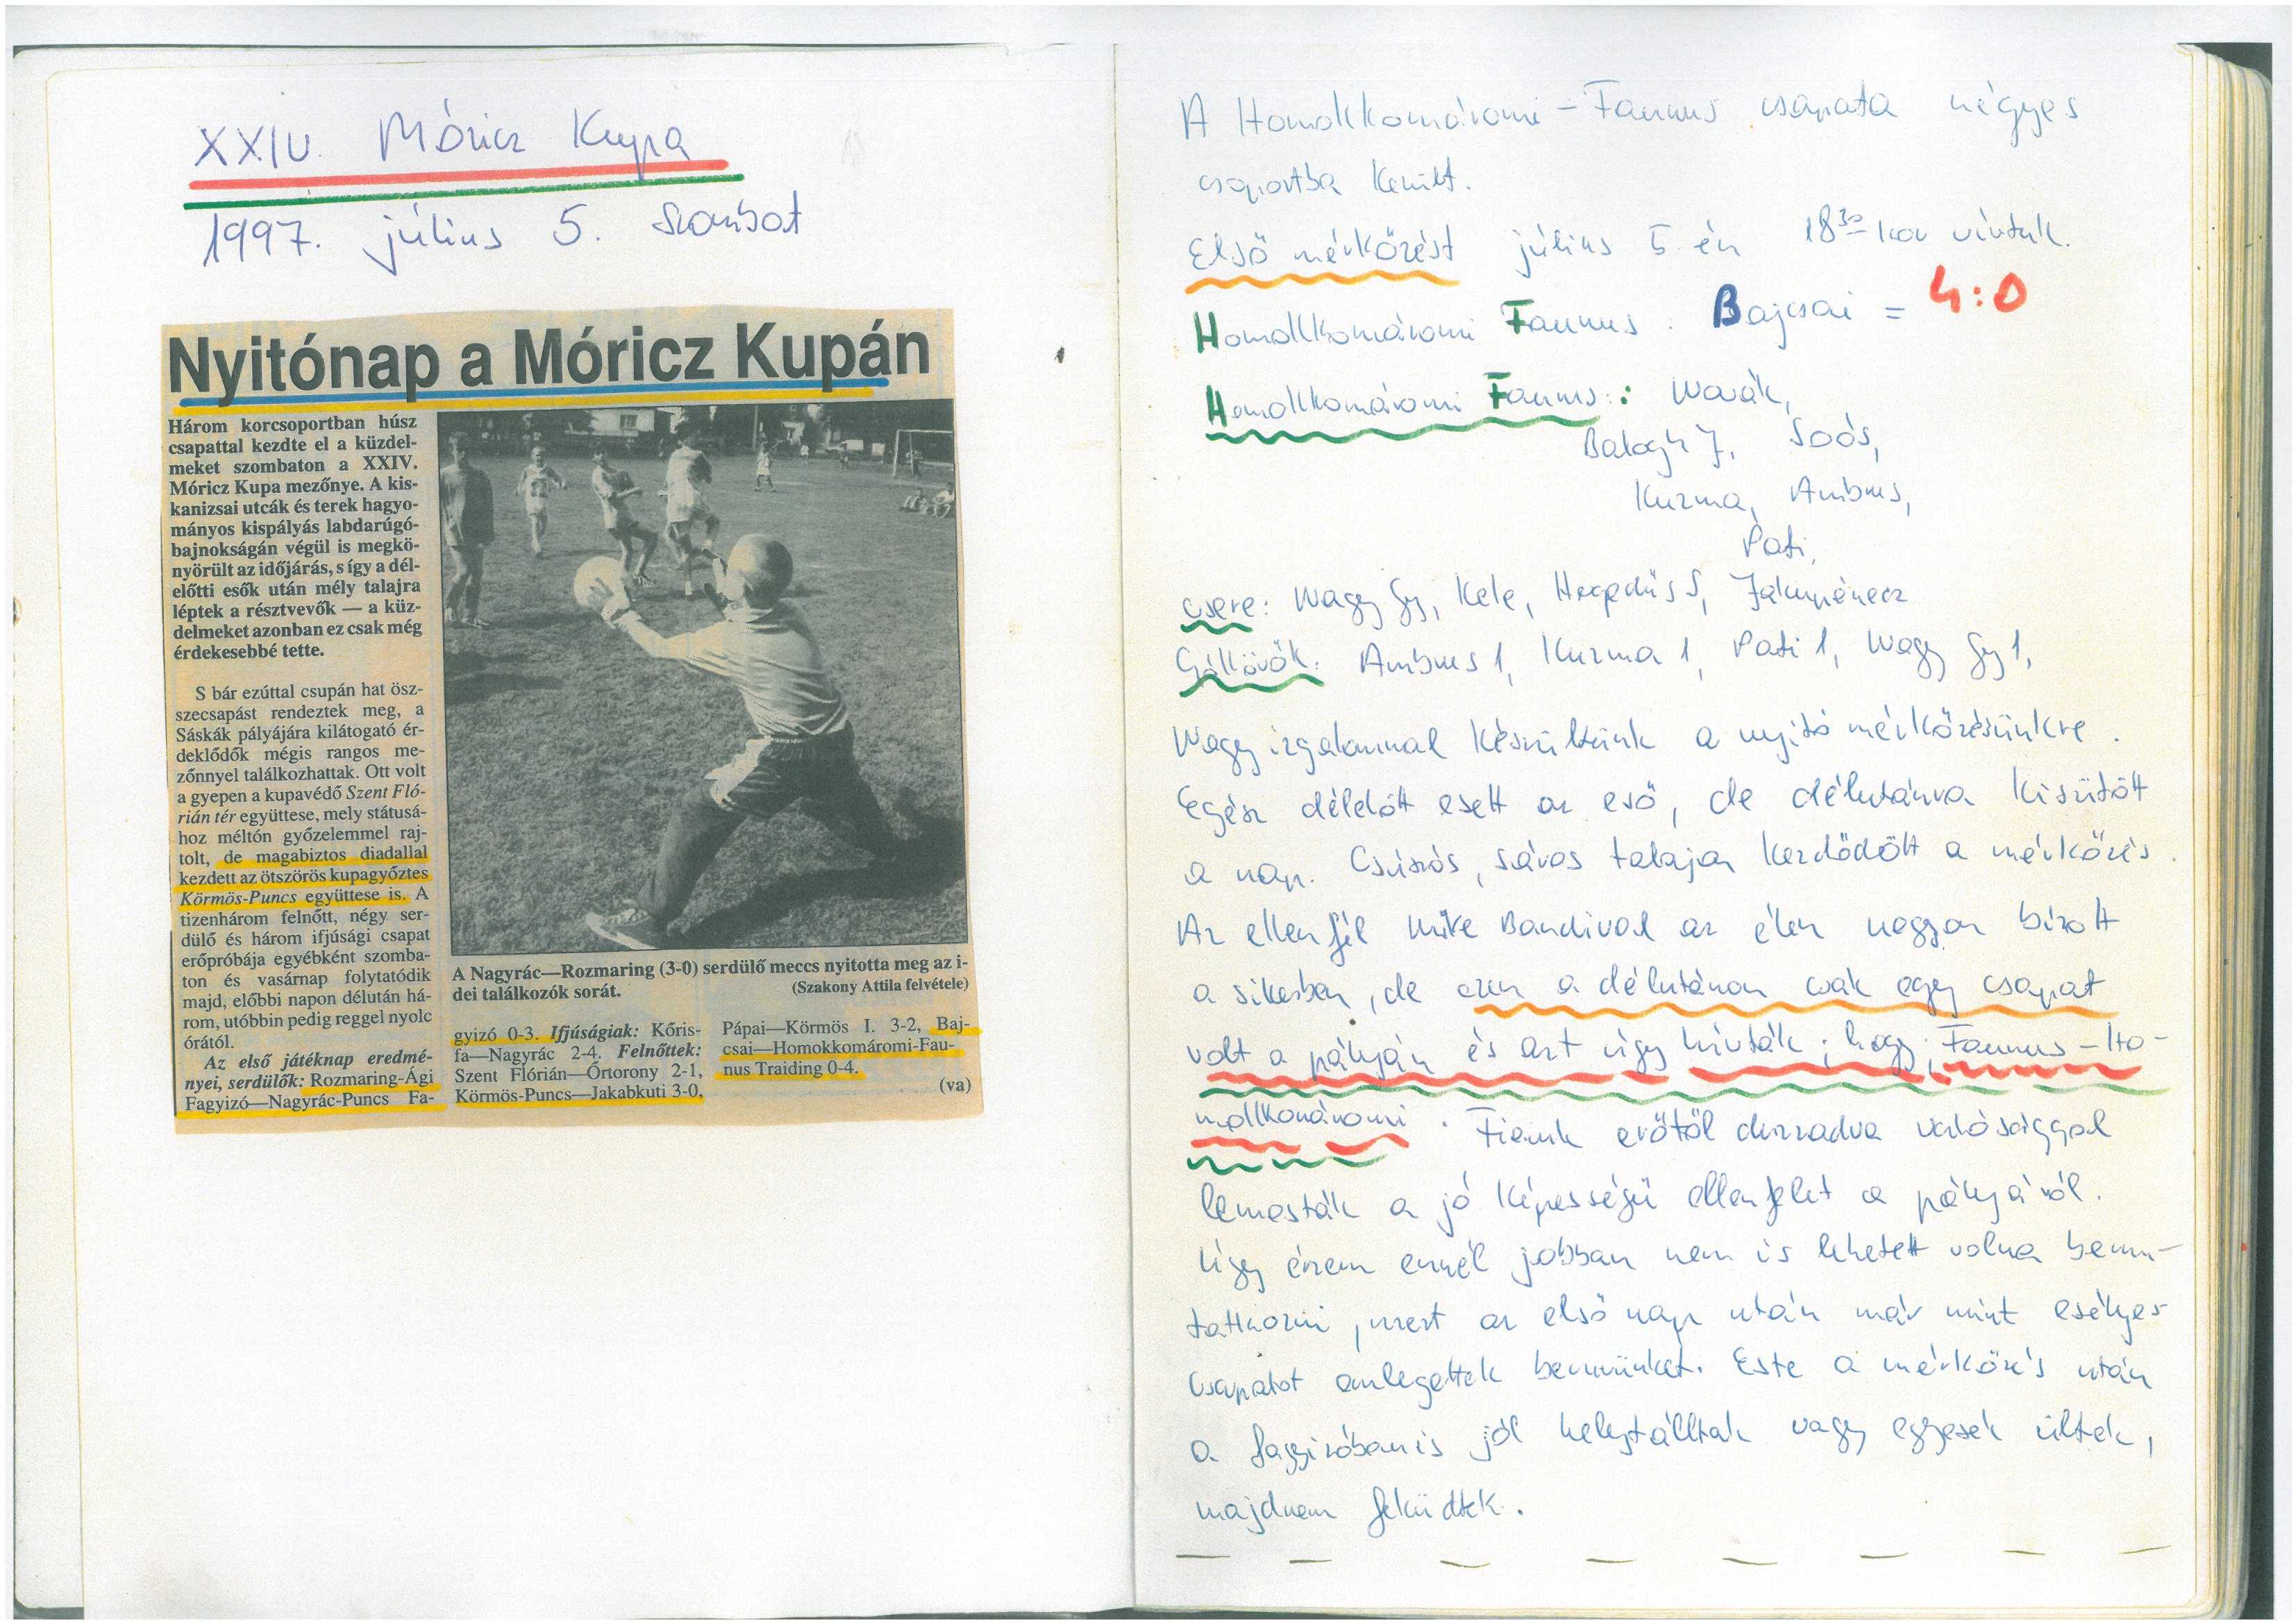 XXIV. Móricz Kupa
1997. július 5. szombat
Nyitónap a Móricz Kupán
Három korcsoportban húsz
csapattal kezdte el a küzdel-
meket szombaton a XXIV.
Móricz Kupa mezőnye. A kis-
kanizsai utcák és terek hagyo-
mányos kispályás labdarúgó-
bajnokságán végül is megkö-
nyörült az időjárás, s így a dél-
előtti esők után mély talajra
léptek a résztvevők — a küz-
delmeket azonban ez csak még
érdekesebbé tette.
S bár ezúttal csupán hat ösz-
szecsapást rendeztek meg, a
Sáskák pályájára kilátogató ér-
deklődők mégis rangos me-
zőnnyel találkozhattak. Ott volt
a gyepen a kupavédő Szent Fló-
rián tér együttese, mely státusá-
hoz méltón győzelemmel raj-
tolt, de magabiztos diadallal
kezdett az ötszörös kupagyőztes
Körmös-Puncs együttese is. A
tizenhárom felnőtt, négy ser-
dülő és három ifjúsági csapat
erőpróbája egyébként szomba-
ton és vasárnap folytatódik
majd, előbbi napon délután há-
rom, utóbbin pedig reggel nyolc
órától.
Az első játéknap eredmé-
nyei, serdülők: Rozmaring-Ági
Fagyizó—Nagyrác-Puncs Fa-
A Nagyrác—Rozmaring (3-0) serdülő meccs nyitotta meg az i-
dei találkozók sorát.
(Szakony Attila felvétele)
gyizó 0-3. Ifjúságiak: Kőris-
fa—Nagyrác 2-4. Felnőttek:
Szent Flórián—Őrtorony 2-1,
Körmös-Puncs—Jakabkuti 3-0,
Pápai—Körmös I. 3-2, Baj-
csai—Homokkomáromi-Fau-
nus Traiding 0-4.
(va)
A Homokkomáromi - Faunus csapata négyes
csoportba került.
Első mérkőzést július 5 én 18 30 kor vívtuk.
Homokkomáromi Faunus : Bajcsai = 4:0
Homokkomáromi Faunus: Novák,
Balogh J, Soós,
Kuzma, Ambrus,
Pati,
csere: Nagy Gy, Kele, Hegedüs S,
Góllövők: Ambrus 1, Kuzma 1, Pati 1, Nagy Gy 1,
Nagy izgalommal készültünk a nyitó mérkőzésünkre.
Egész délelőtt esett az eső, de délutánra kisütött
a nap. Csúszós, sáros talajon kezdődött a mérkőzés.
Az ellenfél Mike Bandival az élen nagyon bízott
a sikerben, de ezen a délutánon csak egy csapat
volt a pályán és azt úgy hívták, hogy; Faunus - Ho-
mokkomáromi. Fiaink erőtől duzzadva valósággal
lemosták a jó képességű ellenfelet a pályáról.
Úgy érzem ennél jobban nem is lehetett volna bemu-
tatkozni, mert az első nap után már mint esélyes
csapatot emlegettek bennünket. Este a mérkőzés után
a fagyizóban is jól helytálltak vagy egyesek ültek,
majdnem feküdtek.